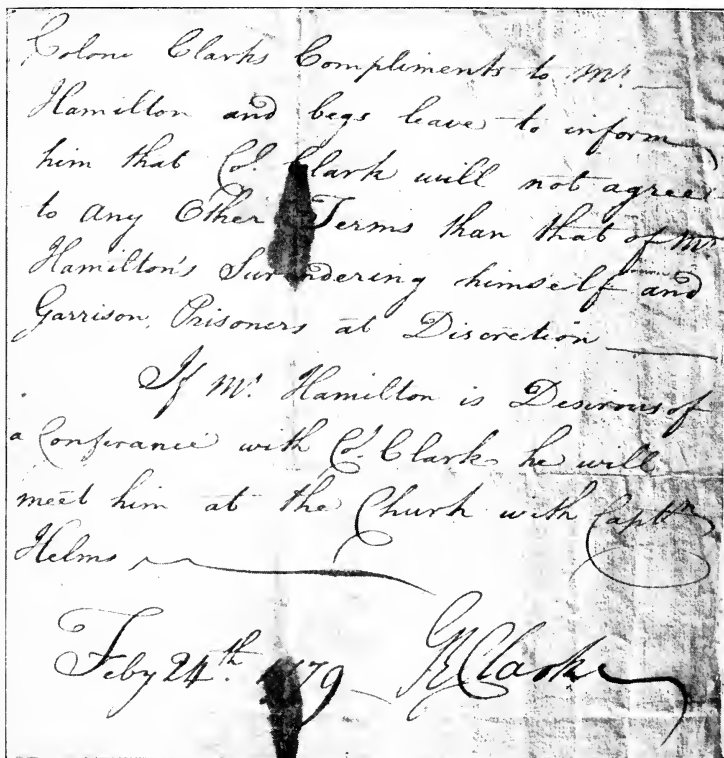 Colone Clarks Compliments to Mr.
Hamilton and begs leave to inform
him that Col. Clark will not agree
to any Other Terms than that of Mr.
Hamilton's Surendering himself and
Garrison, Prisoners at Discretion
If Mr. Hamilton is Desirous of
a Conferance with Col. Clark he will
meet him at the Church with Captn
Helms
Feby 24th. 1779 GRClark